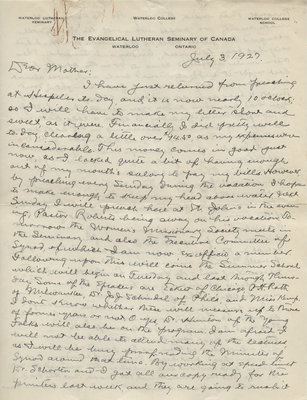 WATERLOO LUTHERAN SEMINARY
WATERLOO COLLEGE
WATERLOO COLLEGE SCHOOL
THE EVANGELICAL LUTHERAN SEMINARY OF CANADA
WATERLOO ONTARIO
July 3, 1927.
Dear Mother;
I have just returned from preaching
at to day and it is now nearly 10 o'clock,
so I will have to make my letter short and
sweet, as it were. Financially I did pretty well
to day, clearing a little over as my expenses were
inconsiderable. This money comes in good just
now, as I lacked quite a bit of having enough
out of my month's salary to pay my bills. However
by preaching every Sunday during the vacation I hope
to make enough to keep my head above water. Next
Sunday I will preach here at St. John's in the even-
ing, Pastor Roberts being away on his vacation.
To-morrow the Women's Missionary Society meets in
the Seminary, and also the Executive Committee of
Synod of which I am now ex officio a member.
Following upon this will come the Summer School
which will begin on Tuesday and last through Thurs-
day. Some of the speakers are of Chicago, 
of Milwaukee, Dr. of Phila. and Miss
I don't know whether there will measure up to those
of former years or not. of the Young
Folks will also be on the program. I am afraid I
will not be able to attend many of the lectures
as I will be busy proofreading the Minutes of
Synod around that time. By working at speed
Dr. and I got all our copy ready for the
printers last week, and they are going to rush it